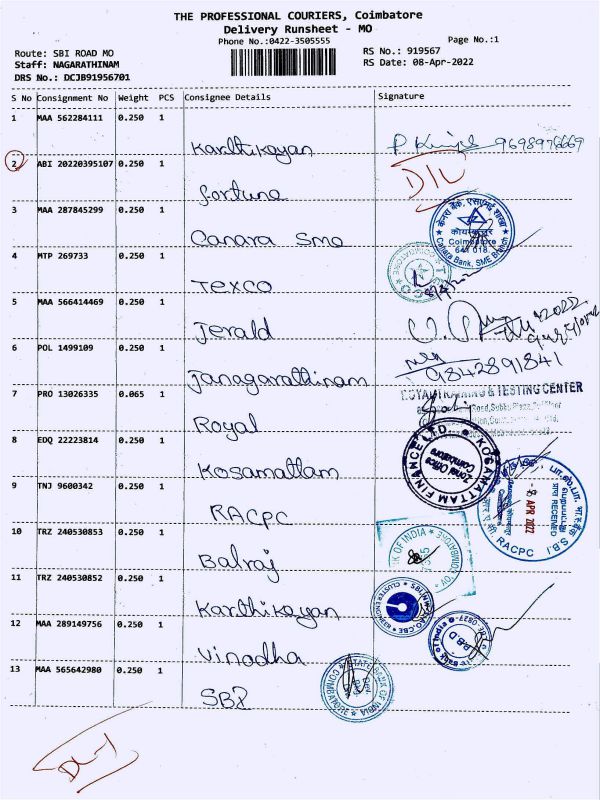 THE PROFESSIONAL COURIERS, Coimbatore
Delivery Runsheet - MO
Phone No.:0422-3505555
Page No.:1
Route: SBI ROAD MO
RS No.: 919567
Staff: NAGARATHINAM
RS Date: 08-Apr-2022
DRS No.: DCJB91956701
S No Consignment No Weight PCS Consignee Details Signature
1 MAA 562284111 0.250 1
Karthikayan 9698976669
2 ABI 20220395107 0.250 1
fortune D/L
3 MAA 287845299 0.250 1
Canara Sme
केनरा बैंक, एसएमई शाखा
कोयम्बत्तूर
Coimbatore
641 018
Canara Bank, SME Branch
4 MTP 269733 0.250 1
Texco
TEXCO COIMBATORE
5 MAA 566414469 0.250 1
Jerald
6 POL 1499109 0.250 1
Janagarathinam 9842891841
7 PRO 13026335 0.065 1
Royal
ROYAL TRAINING & TESTING CENTER
8 EDQ 22223814 0.250 1
Kosamattam
KOSAMATTAM FINANCE LTD.
Zonal Office
Coimbatore
9 TNJ 9600342 0.250 1
RACPC
प्राप्त RECEIVED
APR 2022
RACPC S.B.I.
10 TRZ 240530853 0.250 1
Balraj
BANK OF INDIA
11 TRZ 240530852 0.250 1
Karthikayan
CLUSTER ENGINEER
12 MAA 289149756 0.250 1
Vinodha
13 MAA 565642980 0.250 1
SBI
STATE BANK OF INDIA
COIMBATORE
DL-1